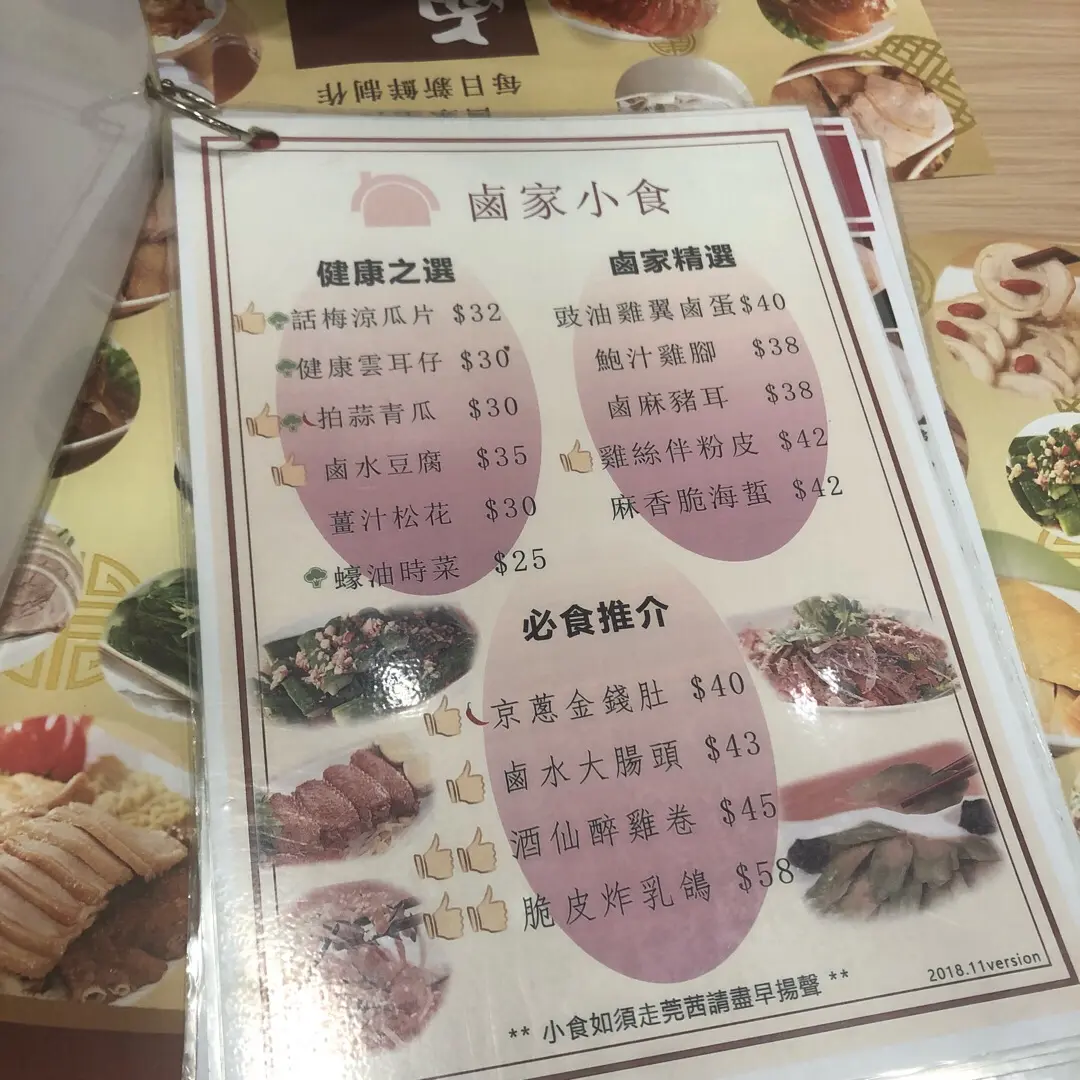 每日新鮮制作
鹵家小食
健康之選
話梅涼瓜片 $32
健康雲耳仔 $30
拍蒜青瓜 $30
鹵水豆腐 $35
薑汁松花 $30
蠔油時菜 $25
鹵家精選
豉油雞翼鹵蛋$40
鮑汁雞腳 $38
鹵麻豬耳 $38
雞絲伴粉皮 $42
麻香脆海蜇 $42
必食推介
京蔥金錢肚 $40
鹵水大腸頭 $43
酒仙醉雞卷 $45
脆皮炸乳鴿 $58
** 小食如須走莞茜請盡早揚聲 **
2018.11version